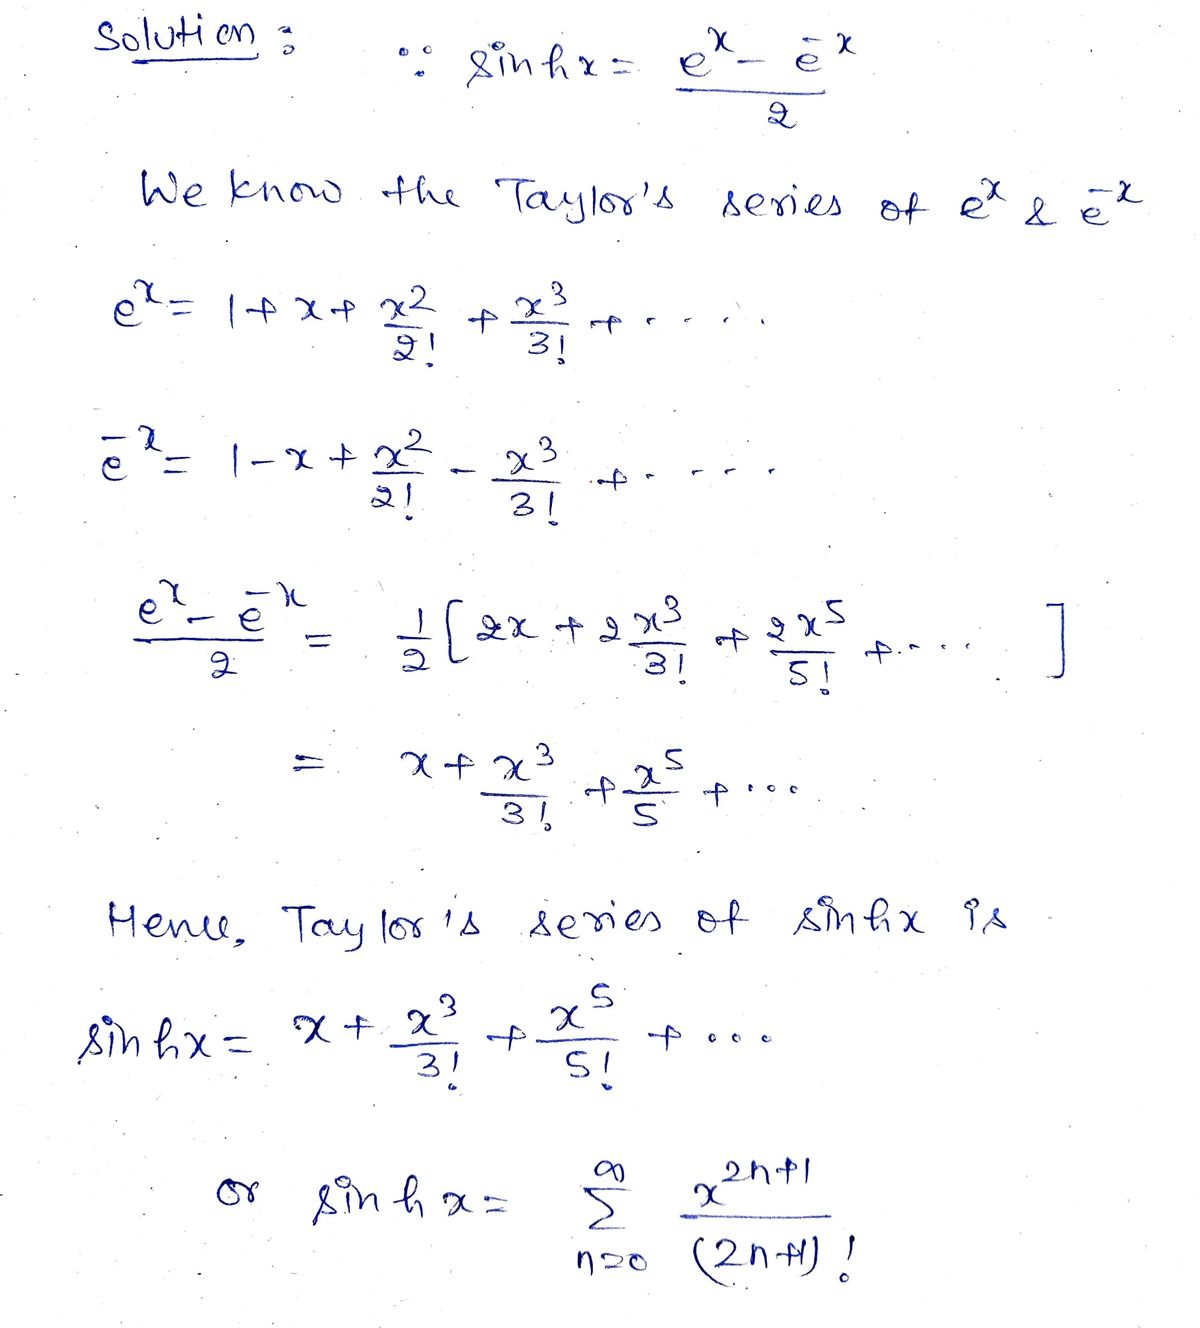 Solution :
∵ sinhx = (e^x - e^-x)/2
We know the Taylor's series of e^x & e^-x
e^x = 1 + x + x^2/2! + x^3/3! + .....
e^-x = 1 - x + x^2/2! - x^3/3! + .....
(e^x - e^-x)/2 = 1/2 [2x + 2x^3/3! + 2x^5/5! + .... ]
= x + x^3/3! + x^5/5 + ....
Hence, Taylor's series of sinhx is
sinhx = x + x^3/3! + x^5/5! + ...
or sinhx = ∑_{n=0}^{∞} x^{2n+1}/(2n+1)!